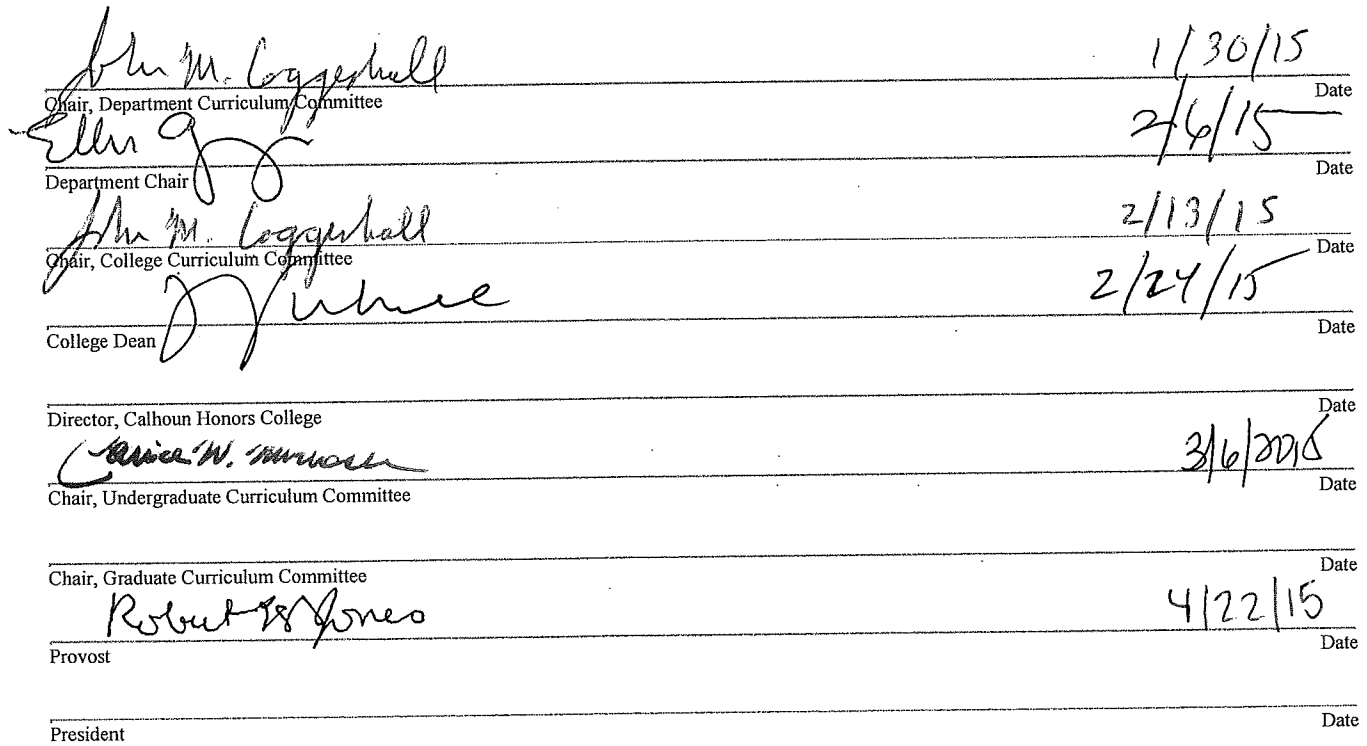 John M. Coggeshall 1/30/15
Chair, Department Curriculum Committee Date
Ellen 2/6/15
Department Chair Date
John M. Coggeshall 2/13/15
Chair, College Curriculum Committee Date
2/24/15
College Dean Date
Director, Calhoun Honors College Date
Janice W. 3/6/2015
Chair, Undergraduate Curriculum Committee Date
Chair, Graduate Curriculum Committee Date
Robert H Jones 4/22/15
Provost Date
President Date